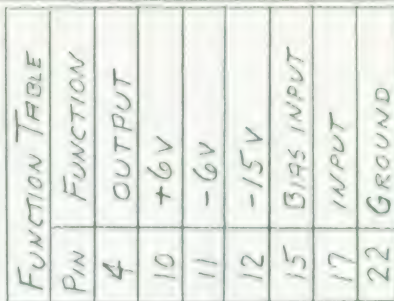 FUNCTION TABLE
PIN FUNCTION
4 OUTPUT
10 +6V
11 -6V
12 -15V
15 BIAS INPUT
17 INPUT
22 GROUND